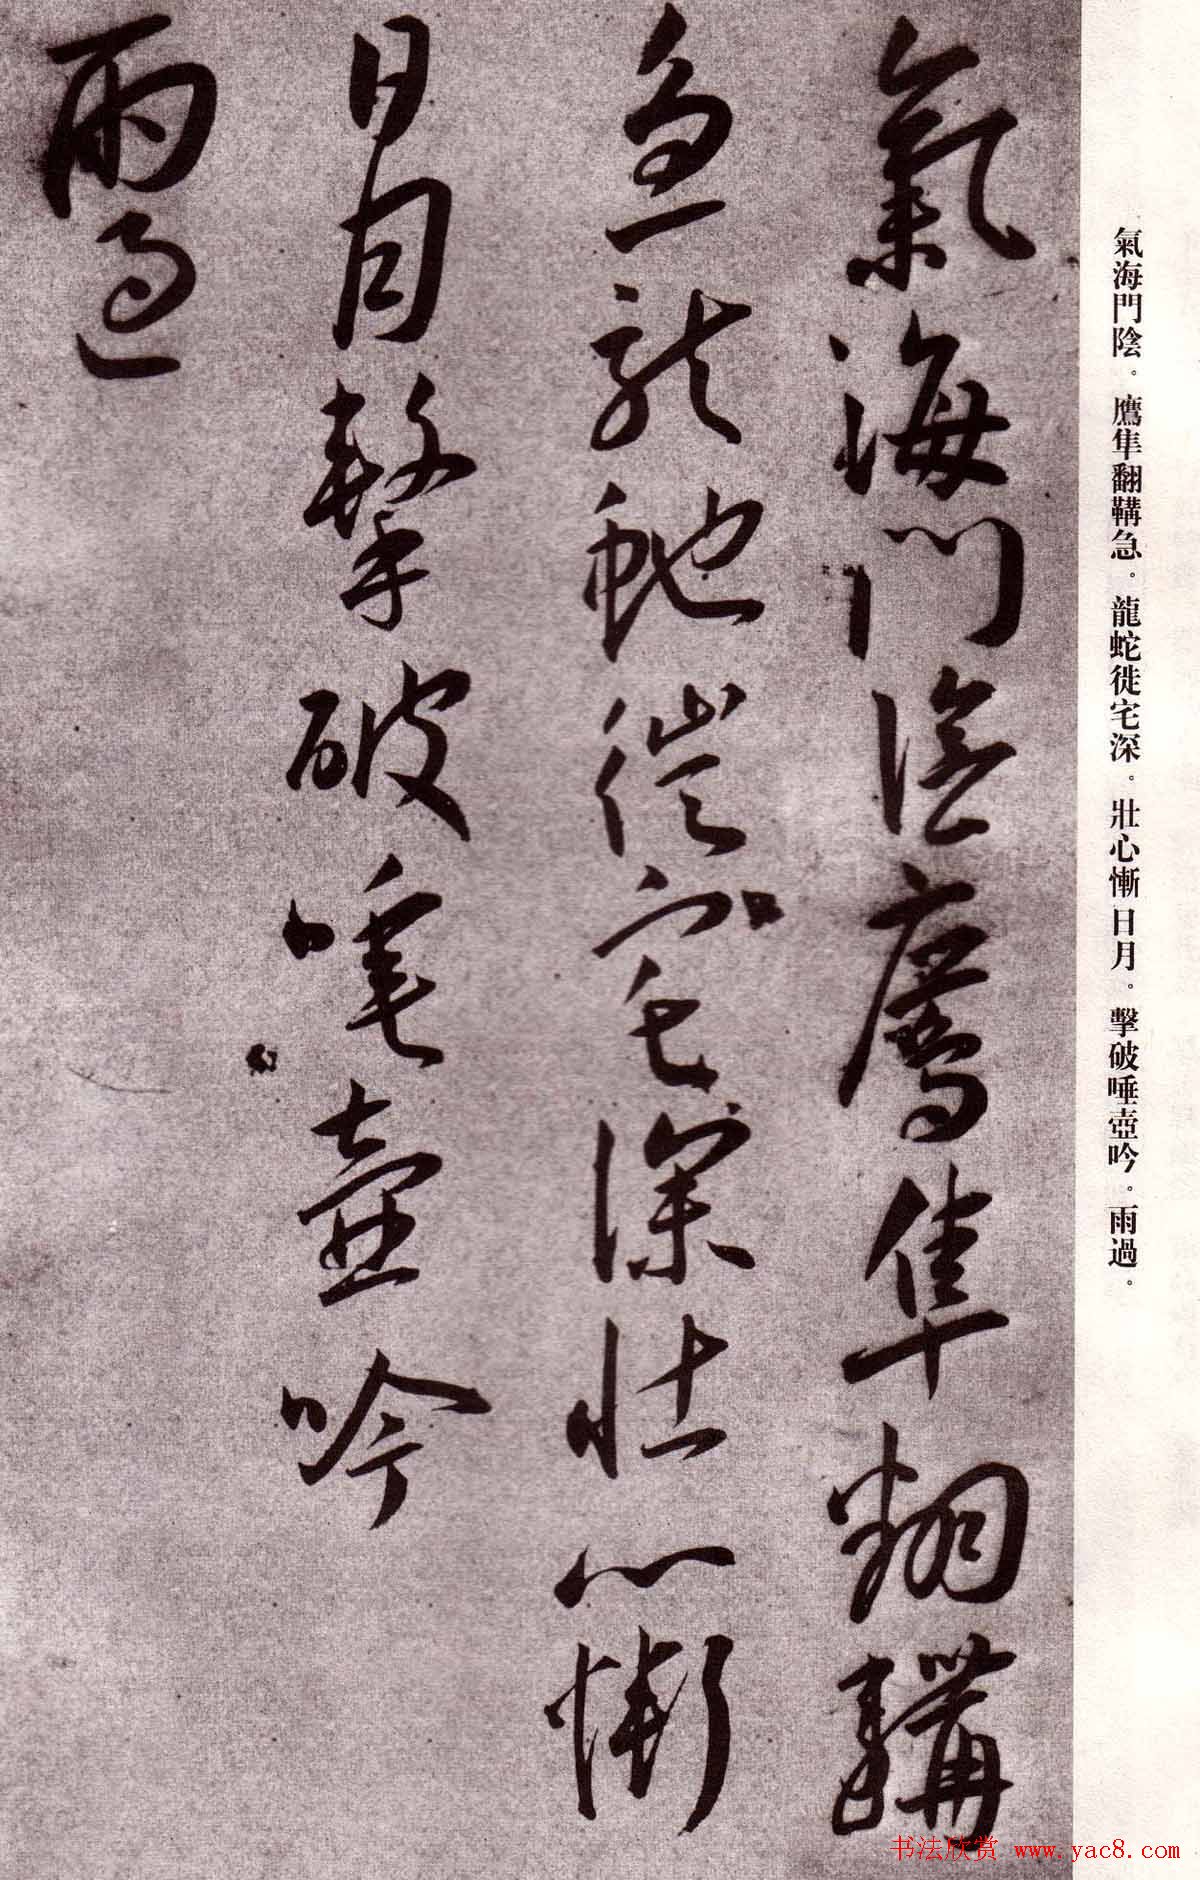 氣海門陰鷹隼翻鞲
急龍蛇徙宅深壯心慚
日月擊破唾壺吟
雨過
氣海門陰。鷹隼翻鞲急。龍蛇徙宅深。壯心慚日月。擊破唾壺吟。雨過。
书法欣赏 www.yac8.com